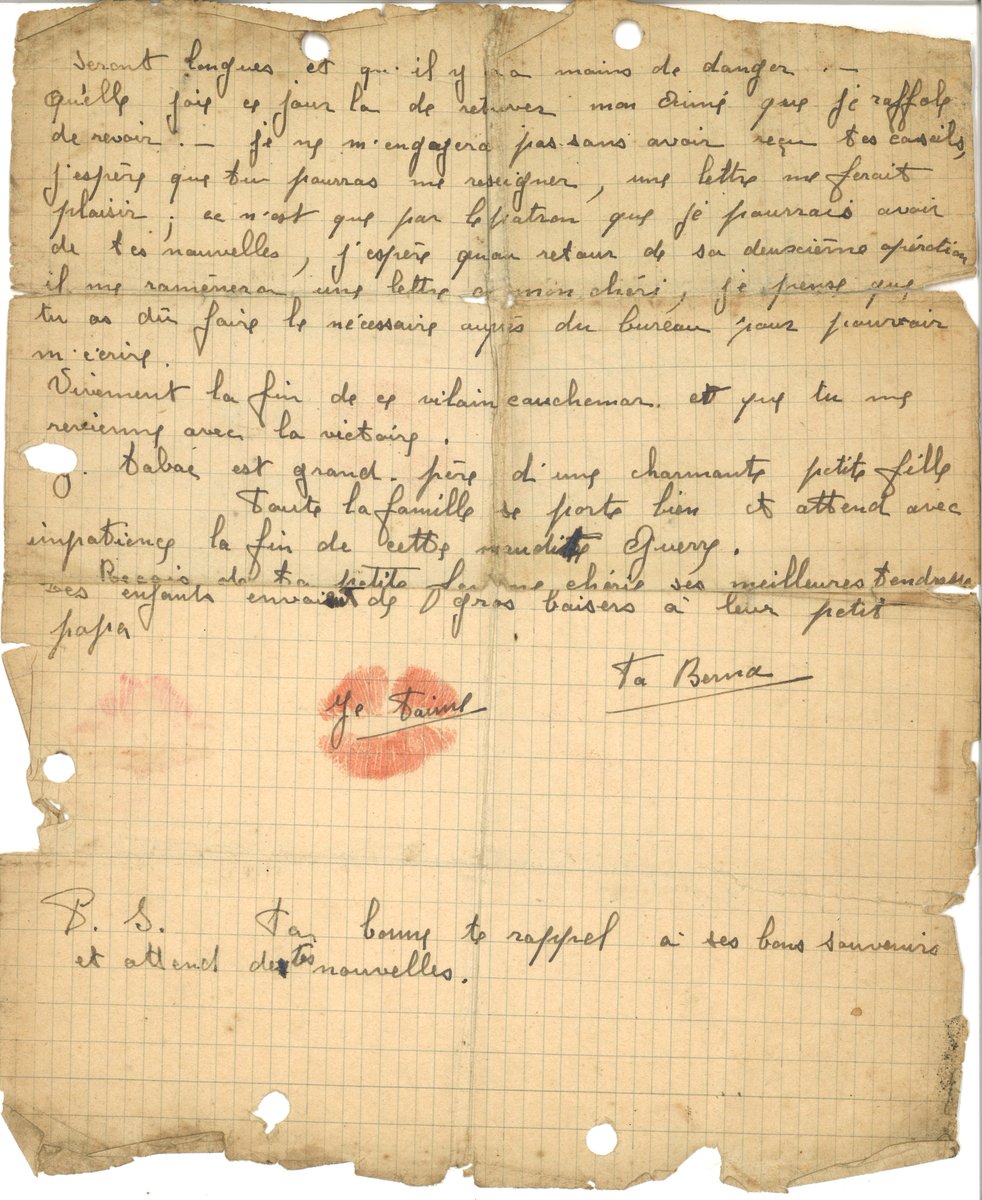 seront longues et qu'il y ra moins de danger . —
Quelle joie ce jour la de retrouver mon aimé que je raffole
de revoir . — je ne m'engagera pas sans avoir reçu tes conseils,
j'espère que tu pourras me reseigner, une lettre me ferait
plaisir ; ce n'est que par le patron que je pourrais avoir
de tes nouvelles, j'espère qu'au retour de sa deuxième opération
il me ramènera une lettre a mon chéri, je pense que
tu as dû faire le nécessaire auprès du bureau pour pouvoir
m'écrire.
Vivement la fin de ce vilain cauchemar. et que tu me
revienne avec la victoire.
tabac est grand-père d'une charmante petite fille
Toute la famille se porte bien et attend avec
impatience la fin de cette maudite Guerre.
Reçois de ta petite femme chérie ses meilleures tendresse
Les enfants envoient de gros baisers à leur petit
papa
Ta Berna
Je taime
P. S. Ta bonne te rappel à ses bons souvenirs
et attend de tes nouvelles.